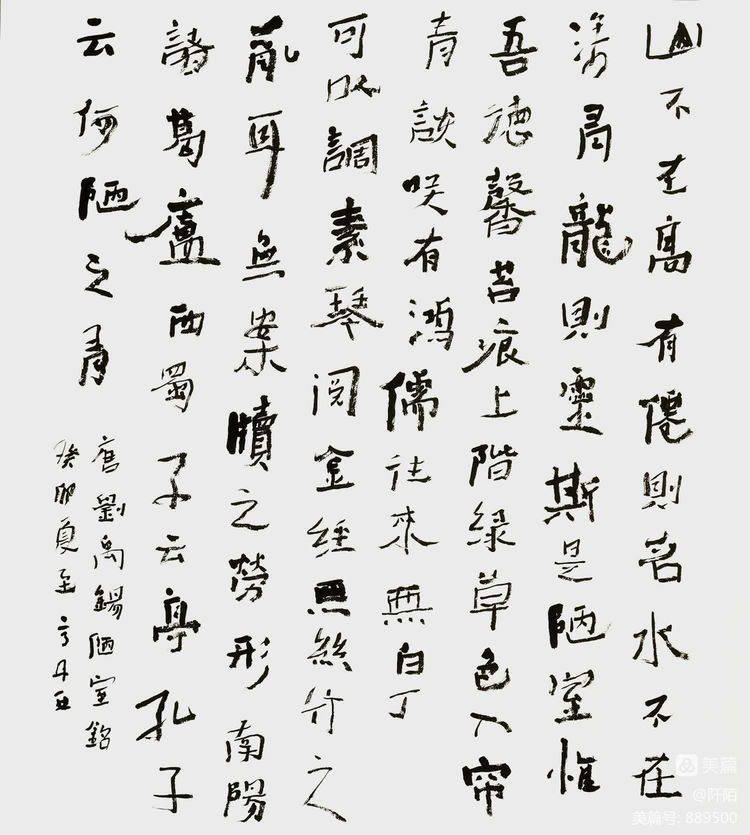 山不在高有僊則名水不在
深有龍則靈斯是陋室惟
吾德馨苔痕上階緑草色入帘
青談咲有鴻儒往來無白丁
可以調素琴阅金經無絲竹之
亂耳無案牘之勞形南陽
諸葛廬西蜀子云亭孔子
云何陋之有
唐劉禹錫陋室銘
癸卯夏至
美篇
@阡陌
美篇号: 889500